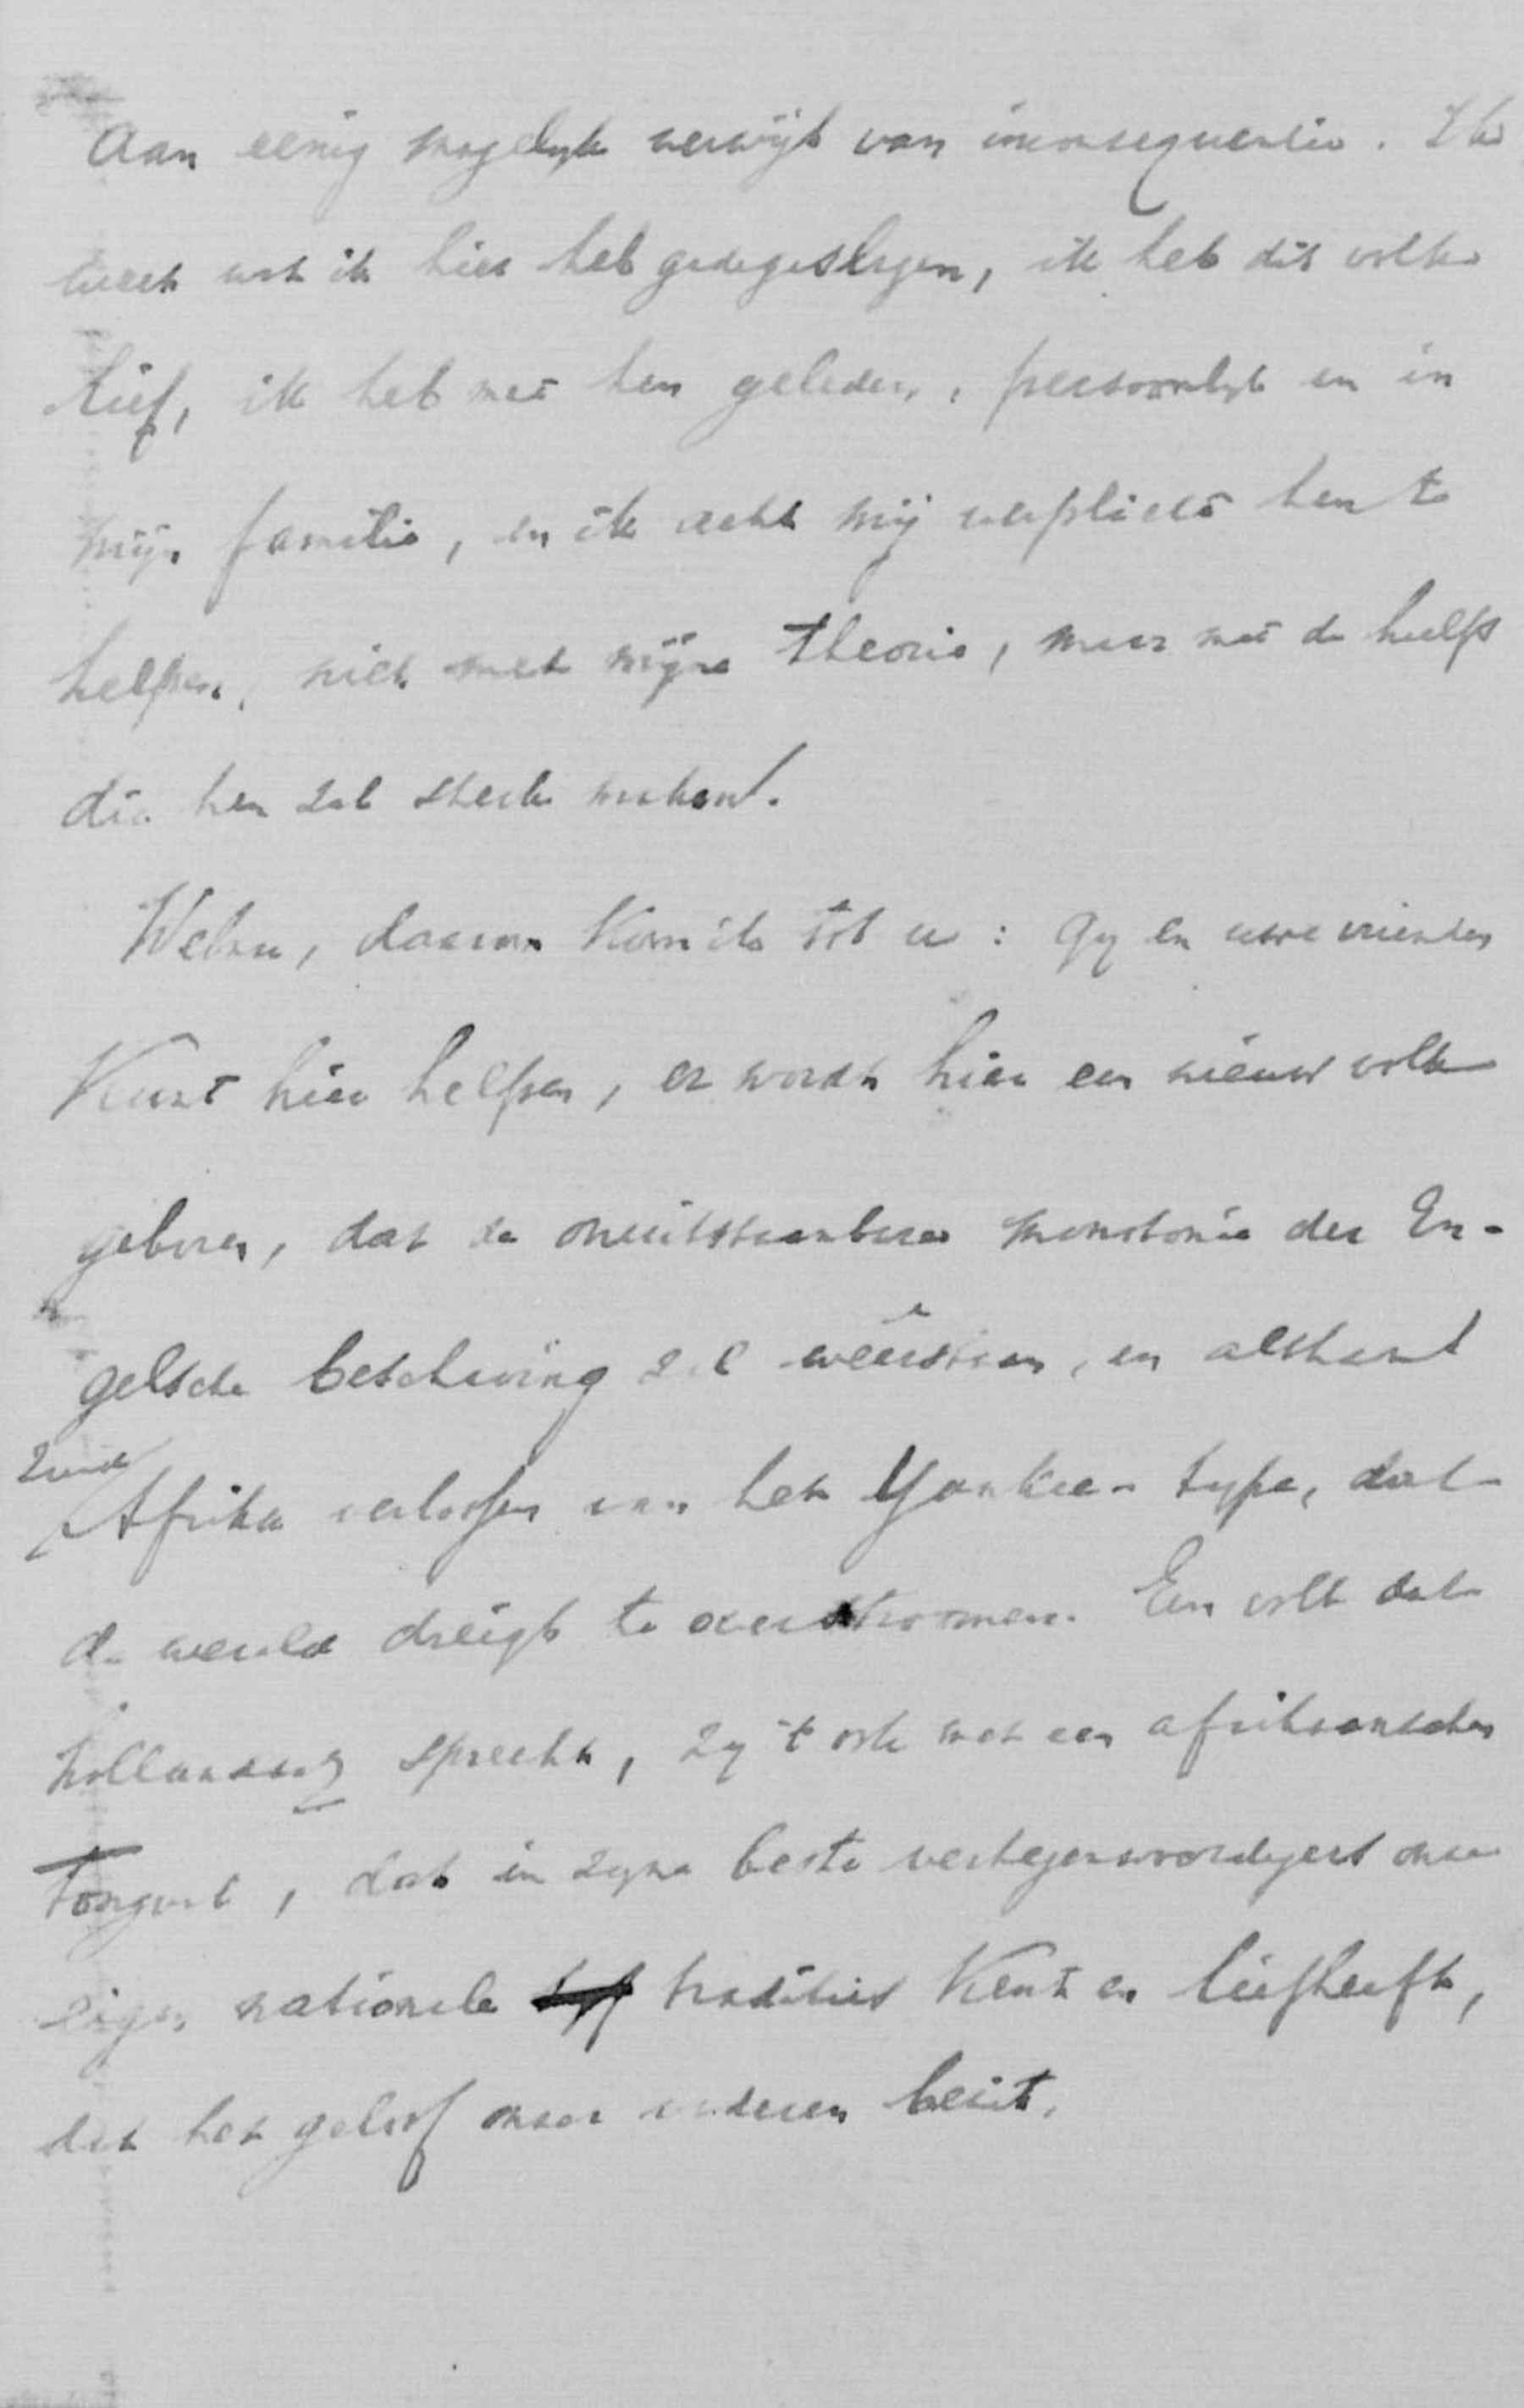 aan eenig mogelyk verwijt van inconsequentie. Ik
weet wat ik hier heb gadegeslagen, ik heb dit volk
lief, ik heb met hen geleden, persoonlyk en in
mijn familie, en ik acht mij verplicht hen te
helpen, niet met mijne theorie, maar met de hulp
die hen zal sterk maken.
Welnu, daarom kom ik tot u: Gy en uwe vrienden
kunt hier helpen, er wordt hier een nieuw volk
geboren, dat de onuitstaanbare monotonie der En-
gelsche beschaving zal weêrstaan, en althans
Zuid
Afrika verlossen van het Yankee-type, dat
de wereld dreigt te overstroomen. Een volk dat
hollandsch spreekt, zy 't ook met een afrikaanschen
tongval, dat in zyne beste vertegenwoordigers onze
eigen nationale tradities kent en liefheeft,
dat het geloof onzer vaderen bezit.